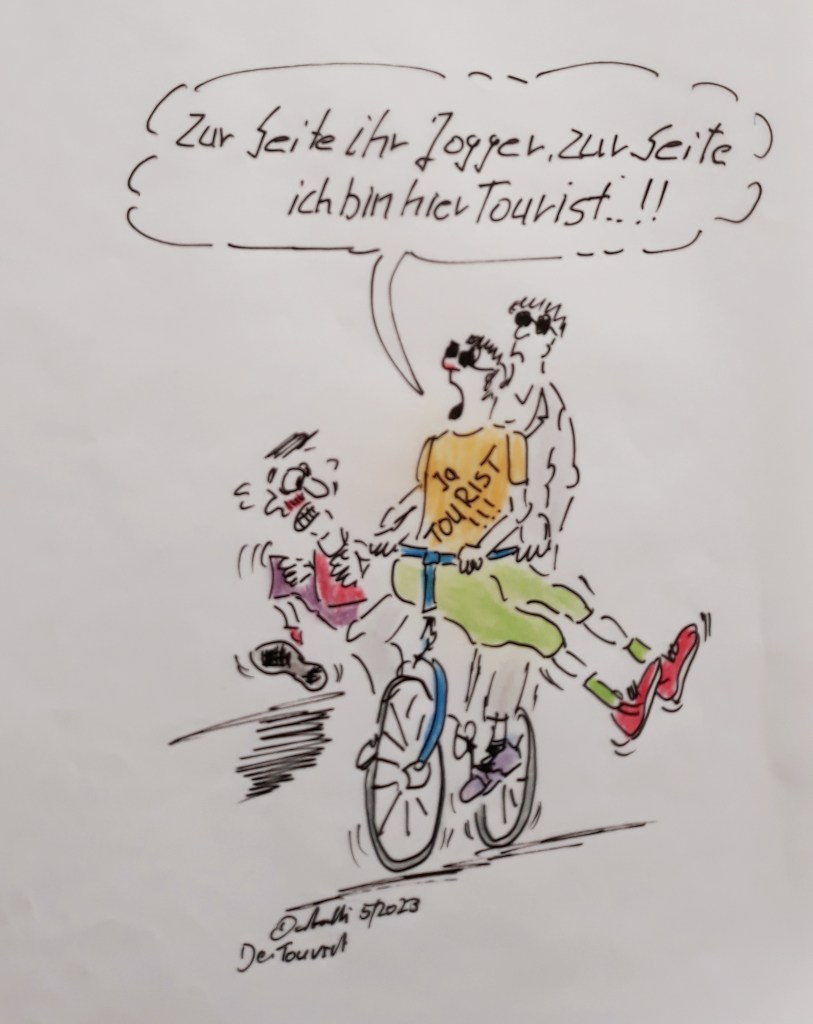 Zur Seite ihr Jogger, zur Seite
ich bin hier Tourist..!!
Ja
TOURIST
!!!
5/2023
Der Tourist